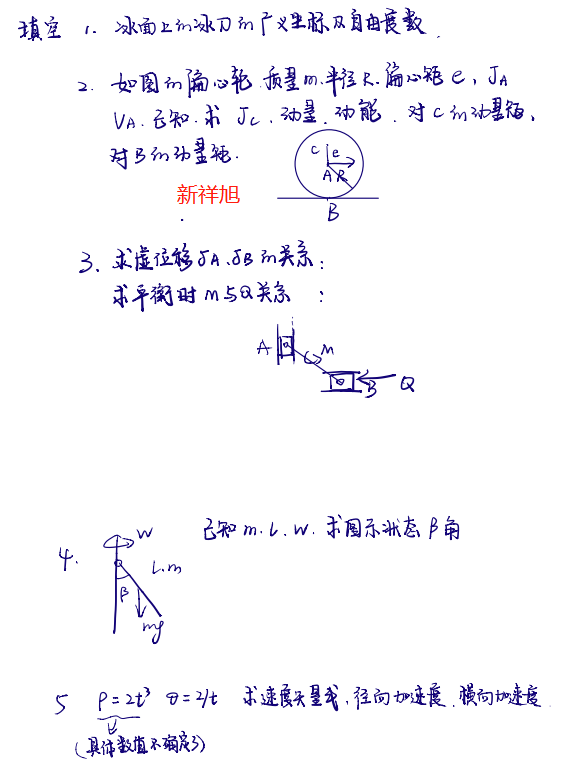 填空 1. 冰面上的冰刀的广义坐标及自由度数.
2. 如图的偏心轮. 质量m.半径R.偏心距e, JA
VA.已知.求 JC.动量.动能.对C的动量矩,
对B的动量矩.
C e
A R
B
新祥旭
3. 求虚位移δA、δB的关系;
求平衡时M与Q关系 ;
A M
B Q
已知m.L.W.求图示状态β角
4. W
L.m
β
mg
5 ρ=2t³ θ=2/t 求速度矢量式,径向加速度.横向加速度.
(具体数值不确定)